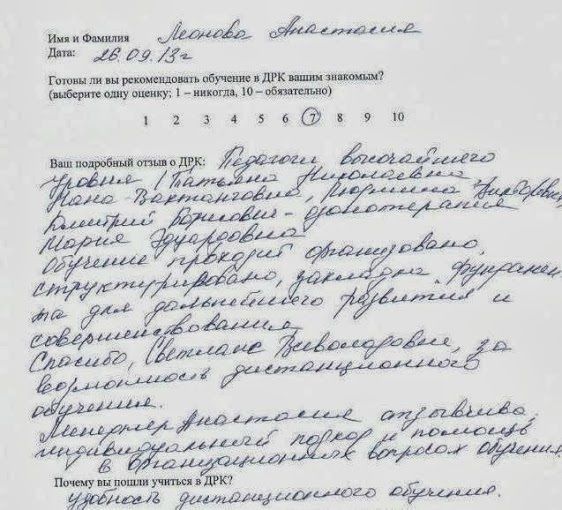 Имя и Фамилия Леонова Анастасия
Дата: 26.09.13г
Готовы ли вы рекомендовать обучение в ДРК вашим знакомым?
(выберите одну оценку; 1 – никогда, 10 – обязательно)
1 2 3 4 5 6 7 8 9 10
Ваш подробный отзыв о ДРК: Педагоги высочайшего
уровня (Татьяна Николаевна,
Нана Вахтанговна, Людмила Викторовна
Дмитрий Борисович - озонотерапия
Мария Эдуардовна
Обучение проходит организовано,
структурировано, закладка фундамен
та для дальнейшего развития и
совершенствования
Спасибо, Светлана Всеволодовне, за
возможность дистанционного
обучения.
Менеджер Анастасия отзывчива,
индивидуальный подход и помощь
в организационных вопросах обучения
Почему вы пошли учиться в ДРК?
удобность дистанционного обучения.